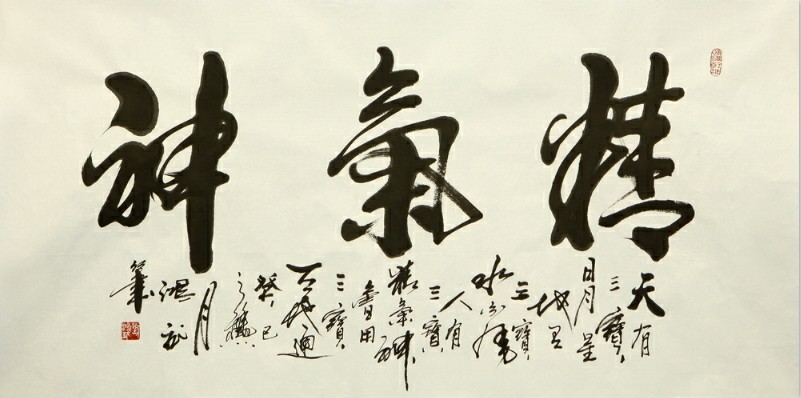 精氣神
天有
三寶
日月星
地有
三寶
水火風
人有
三寶
精氣神
會用
三寶
天地通
癸巳
之龝
月
筆